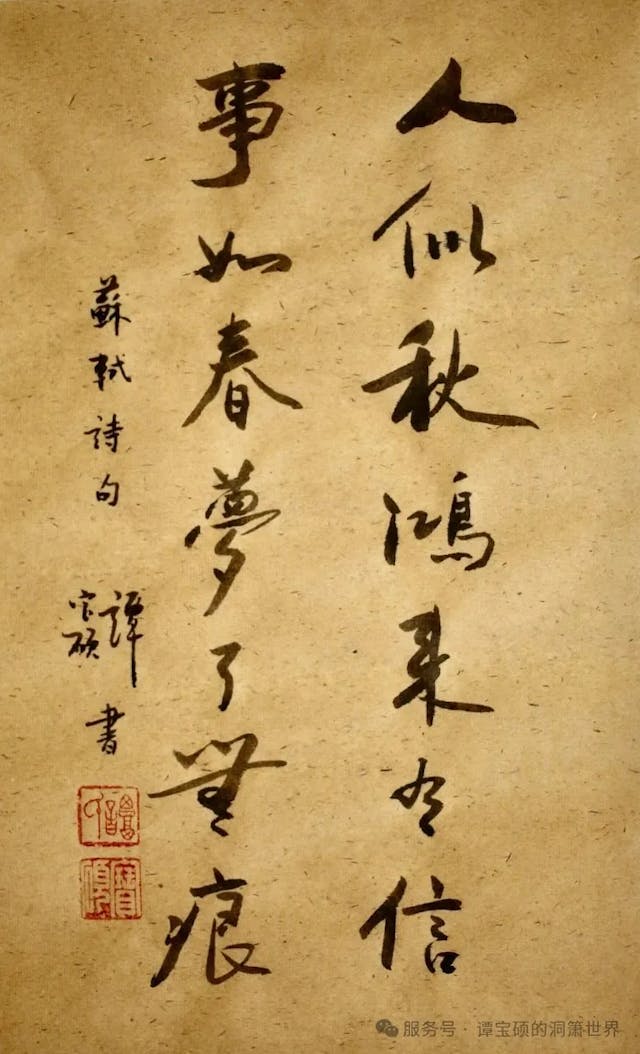 人似秋鴻来有信
事如春夢了無痕
蘇軾詩句
譚宝硕書
服务号·谭宝硕的洞箫世界